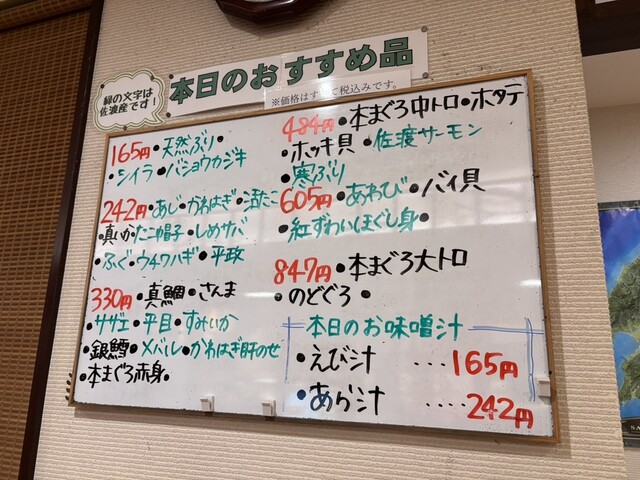 本日のおすすめ品
緑の文字は
佐渡産です!
※価格はすべて税込みです。
165円・天然ぶり・
・シイラ・バショウカジキ
242円・あじ・かわはぎ・活たこ
・真いかたこ帽子・しめサバ
・ふぐ・ウチワハギ・平政
330円・真鯛・さんま
・サザエ・平目・すみいか
・銀鱈・メバル・かわはぎ肝のせ
・本まぐろ赤身・
484円・本まぐろ中トロ・ホタテ
・ホッキ貝・佐渡サーモン
・寒ぶり
605円・あわび・バイ貝
・紅ずわいほぐし身・
847円・本まぐろ大トロ
・のどぐろ・
本日のお味噌汁
・えび汁 ‥‥165円
・あら汁 ‥‥242円